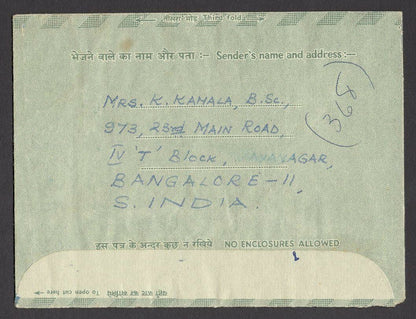 तीसरा मोड़ Third fold
भेजने वाले का नाम और पता :- Sender's name and address :-
(368)
MRS. K. KAMALA, B.Sc.,
973, 23rd MAIN ROAD,
IV 'T' BLOCK, JAYANAGAR,
BANGALORE-11,
S. INDIA.
इस पत्र के अन्दर कुछ न रखिये NO ENCLOSURES ALLOWED
To open cut here यहां काट कर खोलिये